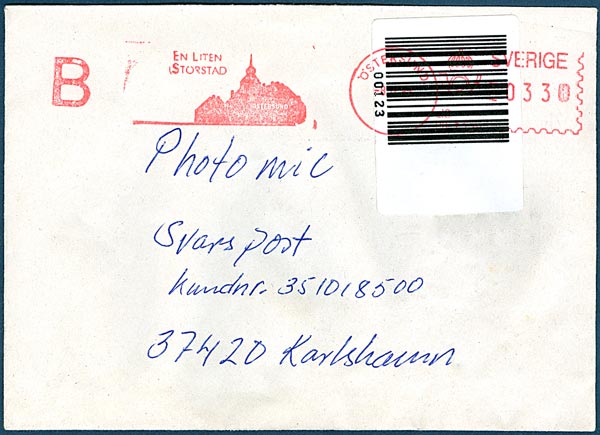 B
EN LITEN
STORSTAD
ÖSTERSUND
ÖSTERSUND
SVERIGE
0330
00123
Photo mic
Svarspost
Kundnr. 351018500
37420 Karlshamn